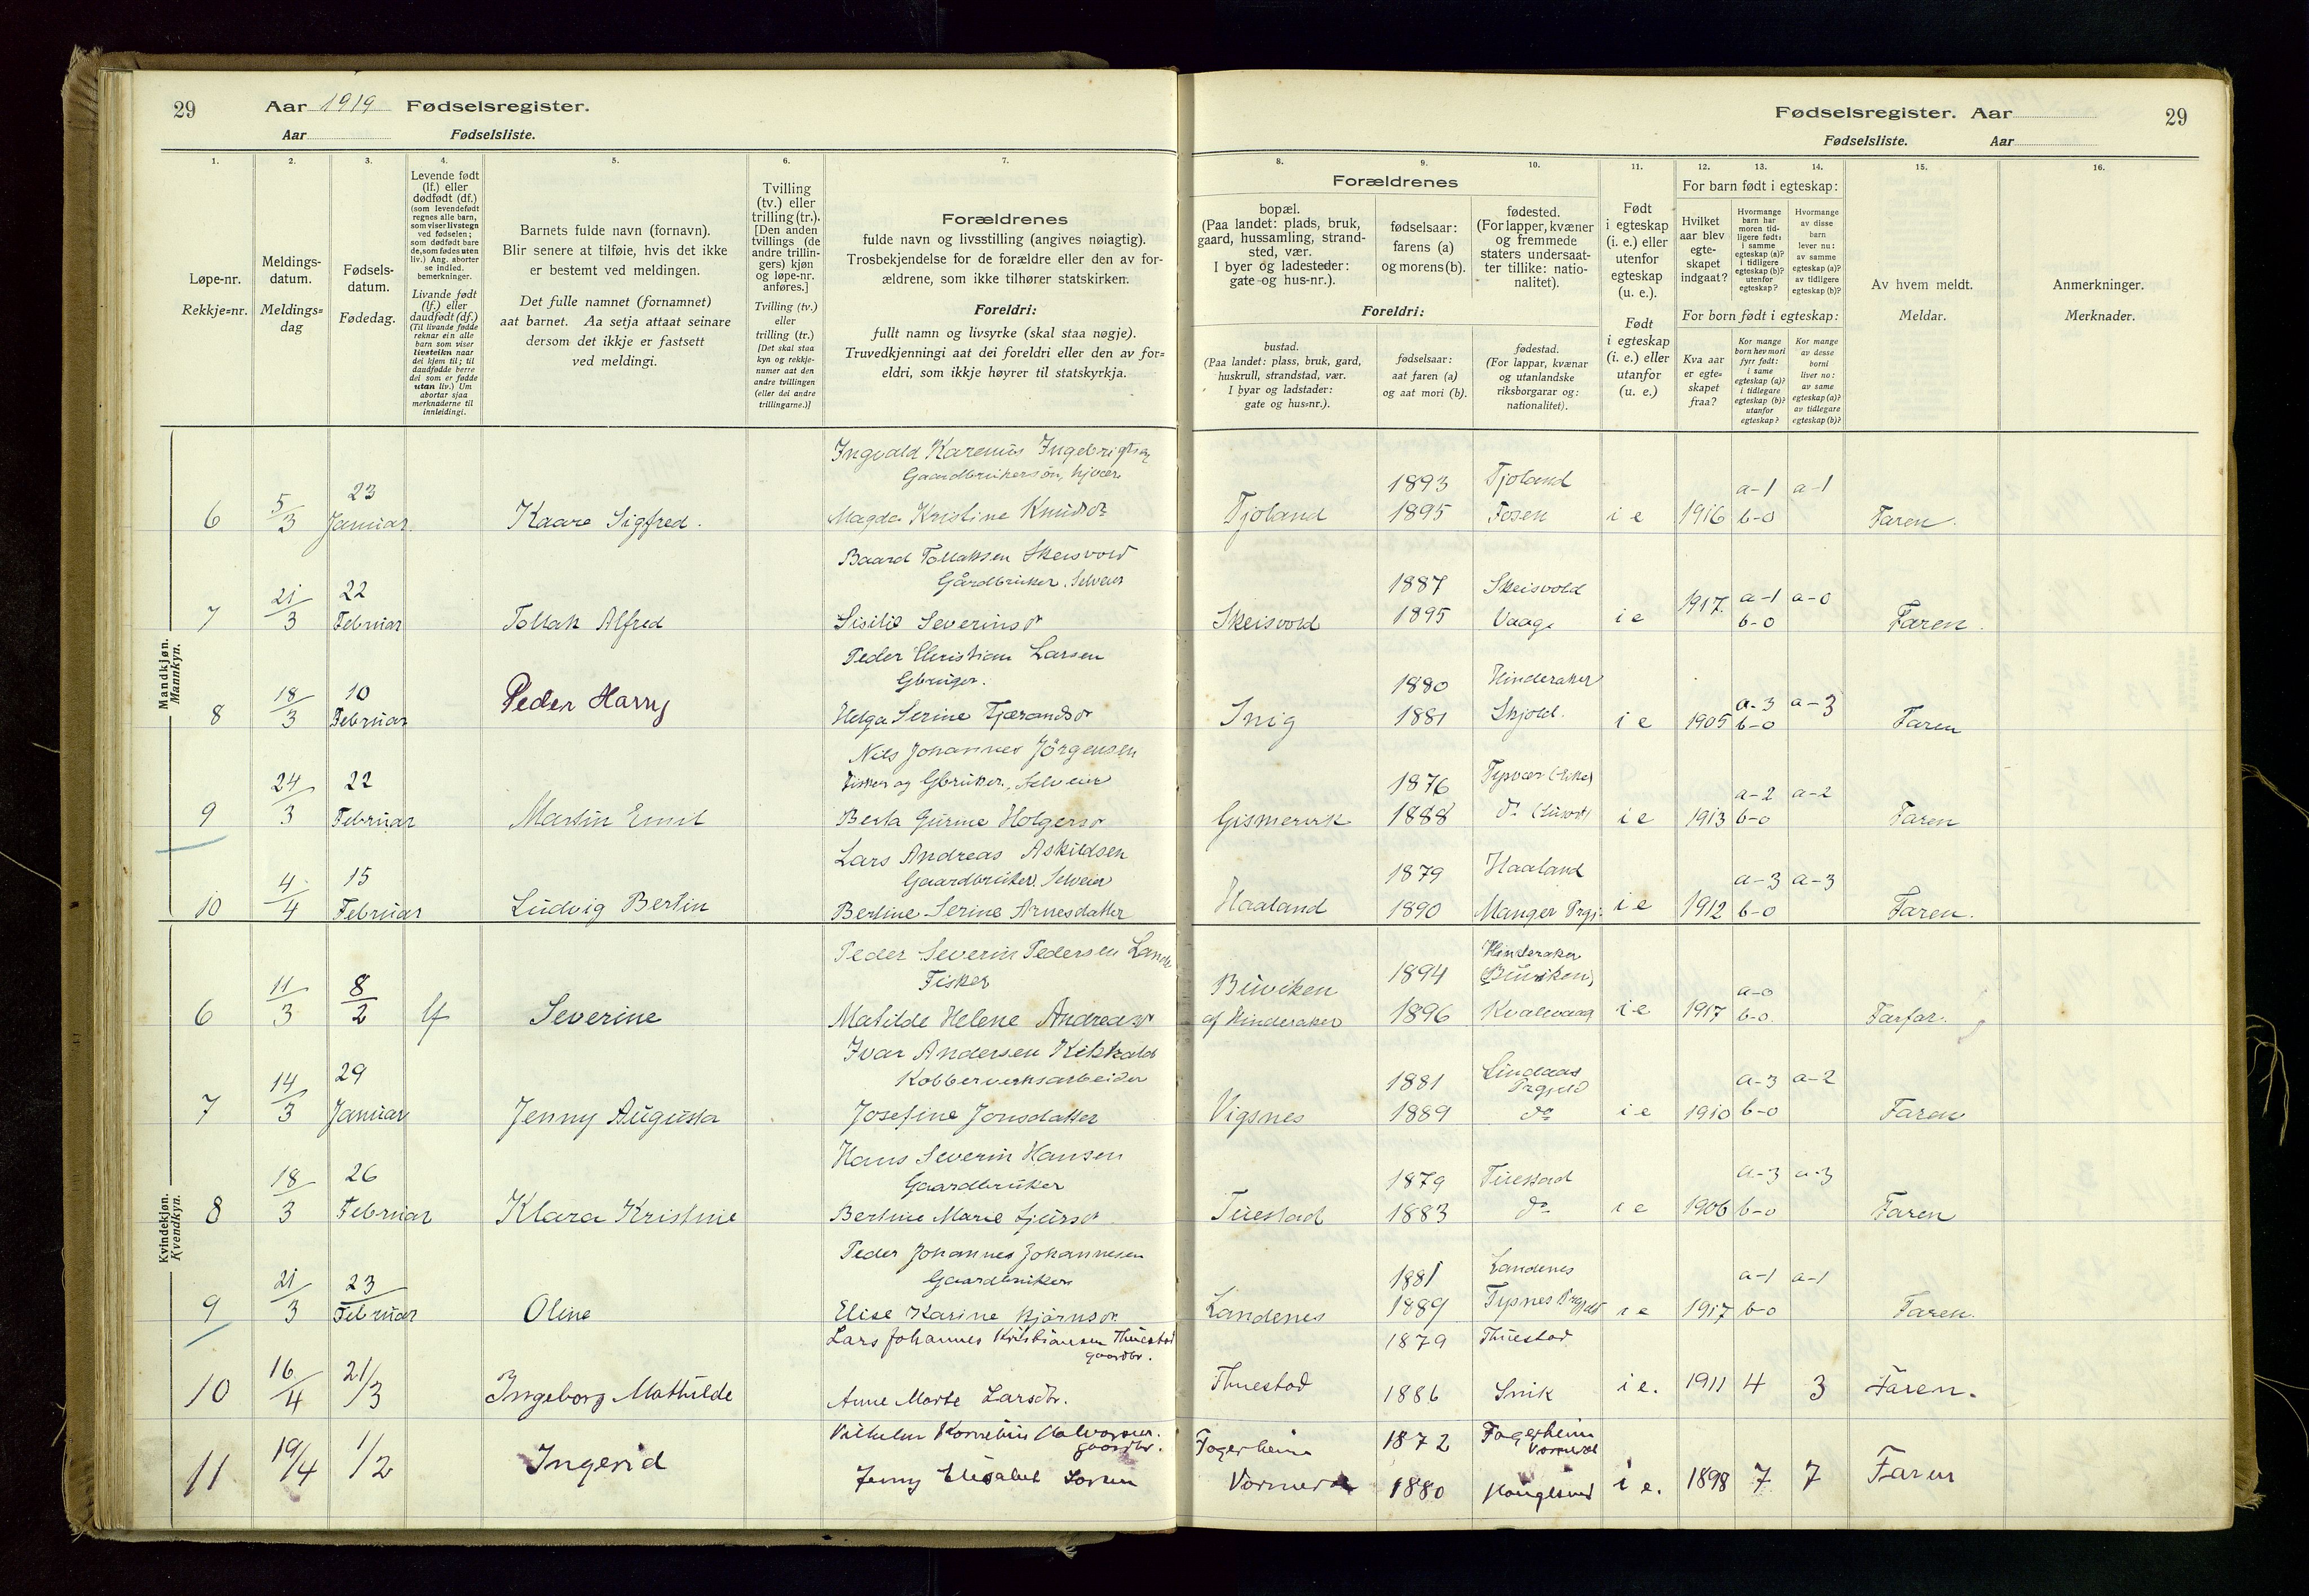 29 Aar 1919 Fødselsregister.
Aar Fødselsliste.
1. 2. 3. 4. 5. 6. 7.
Løpe-nr.
Rekkje-nr.
Meldings-
datum.
Meldings-
dag
Fødsels-
datum.
Fødedag.
Levende født
(lf.) eller
dødfødt (df.)
(som levendefødt
regnes alle barn,
som viser livstegn
ved fødselen;
som dødfødt bare
de, som fødes uten
liv.) Ang. aborter
se indled.
bemerkninger.
Livande født
(lf.) eller
daudfødt (df.)
(Til livande fødde
reknar ein alle
barn som viser
livsteikn naar
dei kjem til; til
daudfødde berre
dei som er fødde
utan liv.) Um
abortar sjaa
merknaderne til
innleidingi.
Barnets fulde navn (fornavn).
Blir senere at tilføie, hvis det ikke
er bestemt ved meldingen.
Det fulle namnet (fornamnet)
aat barnet. Aa setja attaat seinare
dersom det ikkje er fastsett
ved meldingi.
Tvilling
(tv.) eller
trilling (tr.).
[Den anden
tvillings (de
andre trillin-
gers) kjøn
og løpe-nr.
anføres.]
Tvilling (tv.)
eller
trilling (tr.)
[Det skal staa
kyn og rekkje-
numer aat den
andre tvillingen
(eller dei andre
trillingarne.)]
Forældrenes
fulde navn og livsstilling (angives nøiagtig).
Trosbekjendelse for de forældre eller den av for-
ældrene, som ikke tilhører statskirken.
Foreldri:
fullt namn og livsyrke (skal staa nøgje).
Truvedkjenningi aat dei foreldri eller den av for-
eldri, som ikkje høyrer til statskyrkja.
Mandkjøn.
Mannkyn.
Ingvald Karenius Ingebrigtsen
Gaardbrukersøn,
6 5/3 23 Januar Kaare Sigfred. Magda Kristine Knudsdr
Baard Tollaksen Skeisvold
Gårdbruker, Selveier
7 21/3 22 Februar Tollak Alfred Sisilie Severinsdr
Peder Christian Larsen
Gbruger.
8 18/3 10 Februar Peder Harry Helga Serine Tjærandsdr
Nils Johannes Jörgensen
Fisker og Gbruker, Selveier
9 24/3 22 Februar Martin Emil Berta Gurine Holgersdr
Lars Andreas Askildsen
Gaardbruker, Selveier
10 4/4 15 Februar Ludvig Bertin Bertine Serine Arnesdatter
Kvindekjøn.
Kvendkyn.
Peder Severin Pedersen Lande
Fisker
6 11/3 8/2 lf Severine Matilde Helene Andreasdr
Ivar Andersen
Kobberverksarbeider
7 14/3 29 Januar Jenny Augusta Josefine Jonsdatter
Hans Severin Hansen
Gaardbruker
8 18/3 26 Februar Klara Kristine Bertine Marie Sjursdr
Peder Johannes Johannesen
Gaardbruker
9 21/3 23 Februar Oline Elise Karine Bjørnsdr
Lars Johannes Kristiansen Thuestad
gaardbr.
10 16/4 21/3 Ingeborg Mathilde Anne Marte Larsdtr.
Vilhelm Kornelius Halvorsen.
gaardbr.
11 19/4 1/2 Ingerid Jenny Elisabet
Fødselsregister. Aar 29
Fødselsliste. Aar
8. 9. 10. 11. 12. 13. 14. 15. 16.
Forældrenes
bopæl.
(Paa landet: plads, bruk,
gaard, hussamling, strand-
sted, vær.
I byer og ladesteder:
gate og hus-nr.).
fødselsaar:
farens (a)
og morens (b).
fødested.
(For lapper, kvæner
og fremmede
staters undersaat-
ter tillike: natio-
nalitet).
Foreldri:
bustad.
(Paa landet: plass, bruk, gard,
huskrull, strandstad, vær.
I byar og ladstader:
gate og hus-nr.).
fødselsaar:
aat faren (a)
og aat mori (b).
fødestad.
(For lappar, kvænar
og utanlandske
riksborgarar og:
nationalitet).
Født
i egteskap
(i. e.) eller
utenfor
egteskap
(u. e.).
Født
i egteskap
(i. e.) eller
utanfor
(u. e.)
For barn født i egteskap:
Hvilket
aar blev
egte-
skapet
indgaat?
Hvormange
barn har
moren tid-
ligere født:
i samme
egteskap (a)?
i tidligere
egteskap (b)?
utenfor
egteskap?
Hvormange
av disse
barn
lever nu:
av samme
egteskap (a)?
av tidligere
egteskap (b)?
For born født i egteskap:
Kva aar
er egte-
skapet
fraa?
Kor mange
born hev mori
fyr født:
i same
egteskap (a)?
i tidlegare
egteskap (b)?
utanfor
egteskap?
Kor mange
av desse
borni
liver no:
av same
egteskap (a)?
av tidlegare
egteskap (b)?
Av hvem meldt.
Meldar.
Anmerkninger.
Merknader.
1893 Tjoland a-1 a-1
Tjoland 1895 Fosen i e 1916 b-0 Faren.
1887 Skeisvold a-1 a-0
Skeisvold 1895 Vaage i e 1917. b-0 Faren.
1880 Hinderaker a-3 a-3
Snig 1881 Skjold. i e 1905 b-0 Faren
1876 Tysvær a-2 a-2
Gismervik 1888 do i e 1913 b-0 Faren
1879 Haaland a-3 a-3
Haaland 1890 Manger Prgj. i e 1912 b-0 Faren.
Hinderaker
Buviken 1894 (Buviken) a-0
af Hinderaker 1896 Kvalevaag i e 1917 b-0. Farfar.
1881 Lindaas Prgjeld a-3 a-2
Vigsnes 1889 do i e 1910 b-0 Faren
1879 Tuestad a-3 a-3
Tuestad 1883 do i e 1906 b-0 Faren
1881 Landenes a-1 a-1
Landenes 1889 Tysnes Prgjeld i e 1917 b-0 Faren.
1879 Thuestad
Thuestad 1886 Snik i e. 1911 4 3 Faren.
Fagerheim 1872 Fagerheim
1880 i e. 1898 7 7 Faren